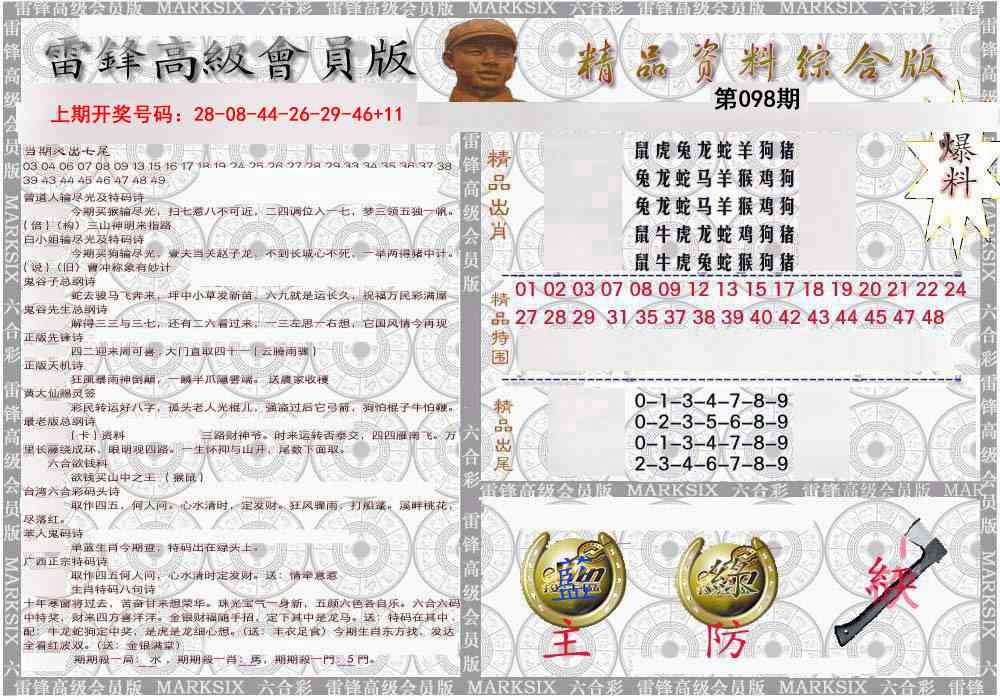 雷锋高级会员版 MARKSIX 六合彩 雷锋高级会员版 MARKSIX 六合彩 雷锋高级会员版 MARKSIX 六合彩 雷锋
雷鋒高級會員版
精品资料综合版
第098期
上期开奖号码：28-08-44-26-29-46+11
爆料
当期火出七尾
03 04 06 07 08 09 13 15 16 17 18 19 24 25 26 27 28 29 33 34 35 36 37 38
39 43 44 45 46 47 48 49
曾道人输尽光及特码诗
今期买猴输尽光，扫七惹八不可近，二四调位入一七，梦三领五独一帆。
{倍}{构}三山神明来指路
白小姐输尽光及特码诗
今期买狗输尽光，壹夫当关赵子龙，不到长城心不死，一举两得猪中计。
{说}{旧}曹冲称象有妙计
鬼谷子总纲诗
蛇去骏马飞奔来，坪中小草发新苗，六九就是运长久，祝福万民彩满屋
鬼谷先生总纲诗
解得三三与三七，还有二六看过来，一三左思一右想，它国风情今再现
正版先锋诗
四二迎来周可喜，大门直取四十一{云腾雨骤}
正版天机诗
狂風暴雨神倒顛，一鱗半爪隱雲端。送農家收穫
黄大仙赐灵签
彩民转运好八字，孤头老人光棍儿，强盗过后它弓箭，狗怕棍子牛怕鞭。
最老版总纲诗
{卡}资料 三路财神爷。时来运转否泰交，四四雁南飞。万
里长藤绕成环，眼明观四路。一生怀抑与山开，尾数下面取。
六合欲钱料
欲钱买山中之王{猴鼠}
台湾六合彩码头诗
取作四五，何人问。心水清时，定发财。狂风骤雨，打船蓬。溪畔桃花，
尽落红。
苯人鬼码诗
单蓝生肖今期查，特码出在绿头上。
广西正宗特码诗
取作四五何人问，心水清时定发财。送：情牵意惹
生肖特码八句诗
十年寒窗将过去，苦奋甘来想荣华。珠光宝气一身新，五颜六色各自乐。六合六码
中特奖，财来四方喜洋洋。金银财福随手招，定下其中是龙马。送：特码在其中，
配：牛龙蛇狗定中奖，是虎是龙细心想。(送：丰衣足食)今期生肖东方找，发达
全看红波双。(送：金银满堂)
期期殺一局：水，期期殺一肖：馬，期期殺一門：5門。
精品出肖
鼠虎兔龙蛇羊狗猪
兔龙蛇马羊猴鸡狗
兔龙蛇马羊猴鸡狗
鼠牛虎龙蛇鸡狗猪
鼠牛虎兔蛇猴狗猪
精品特围
01 02 03 07 08 09 12 13 15 17 18 19 20 21 22 24
27 28 29 31 35 37 38 39 40 42 43 44 45 47 48
精品出尾
0-1-3-4-7-8-9
0-2-3-5-6-8-9
0-1-3-4-7-8-9
2-3-4-6-7-8-9
藍
主
綠
防
紅
雷锋高级会员版 MARKSIX 六合彩 雷锋高级会员版 MARKSIX 六合彩 雷锋高级会员版 MARKSIX 六合彩 雷锋